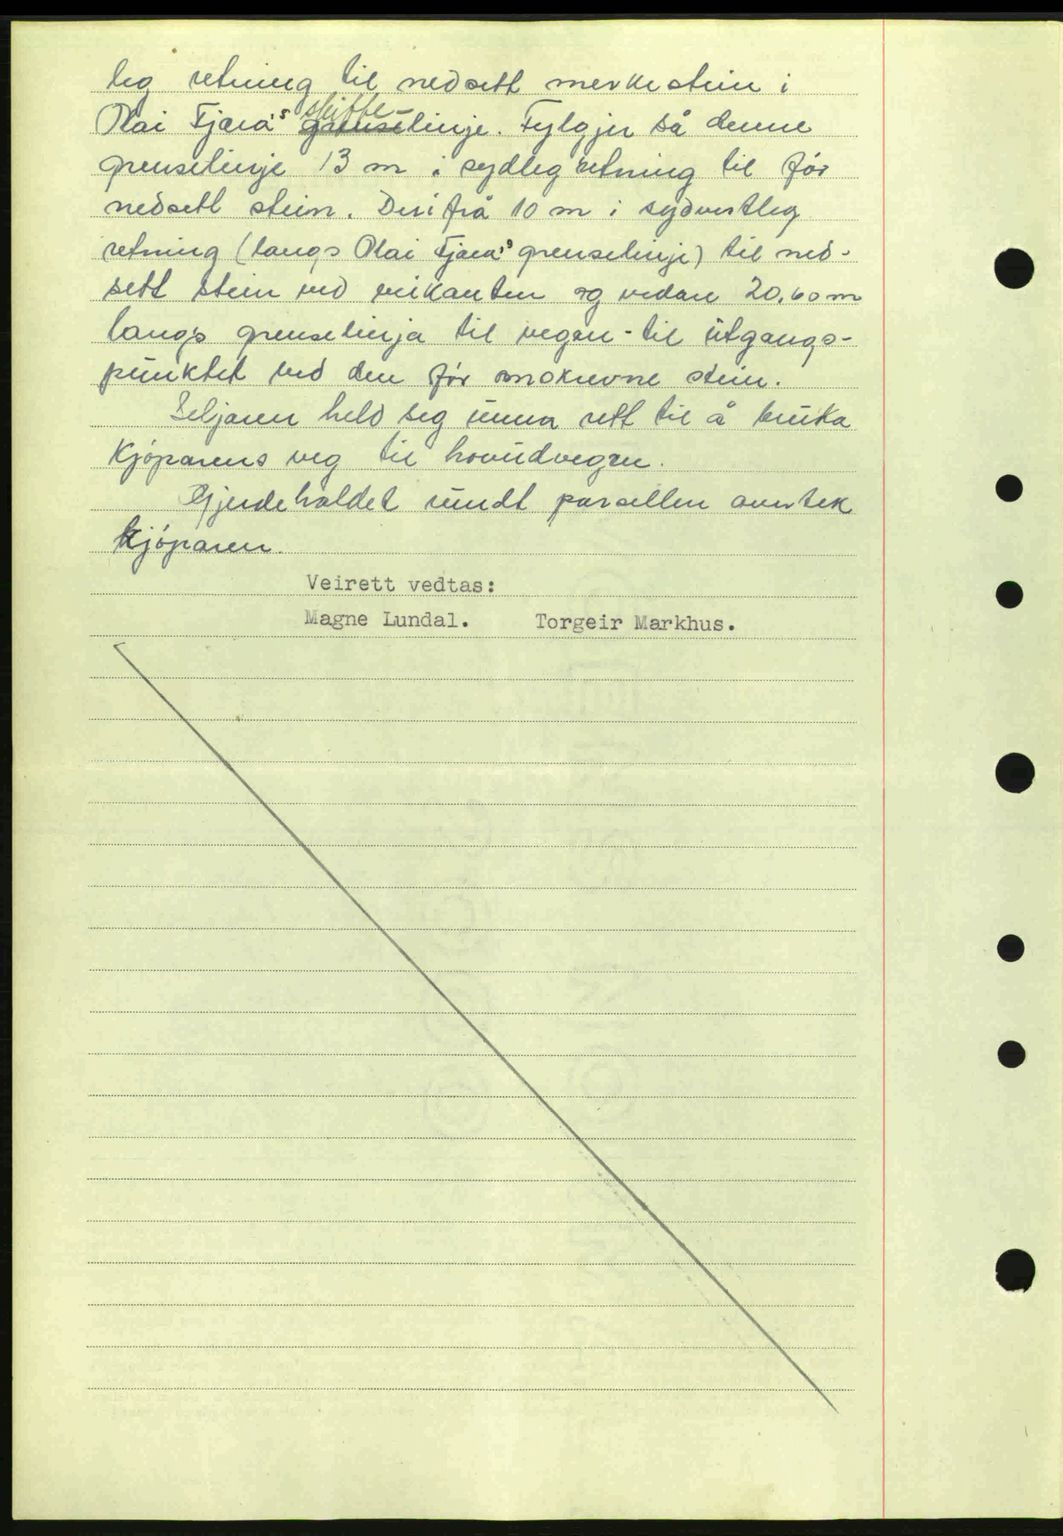 leg retning til nedsett merkestein i
Olai Fjæra's skifte-
grenselinje. Fylgjer så denne
grenselinje 13 m i sydleg retning til før
nedsett stein. Derifrå 10 m i sydvestleg
retning (langs Olai Fjæra's grenselinje) til ned-
sett stein ved veikanten og vidare 20,60 m
langs grenselinja til vegen - til utgangs-
punktet ved den før omskrevne stein.
Seljaren held seg unna rett til å bruka
Kjøparens veg til hovudvegen.
Gjerdehaldet rundt parsellen overtek
kjøparen.
Veirett vedtas:
Magne Lundal. Torgeir Markhus.